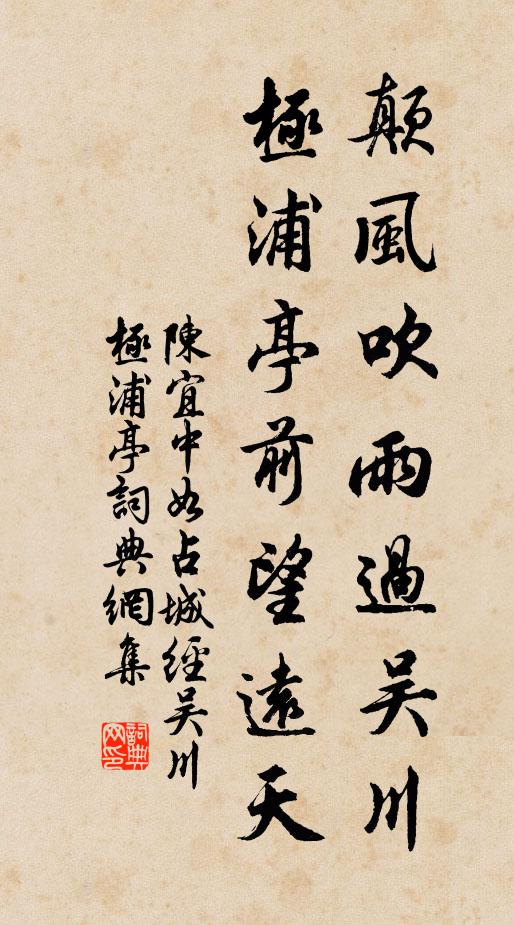 顛風吹雨過吴川
極浦亭前望遠天
陳宜中如占城經吴川
極浦亭詞典網集
詞典网印